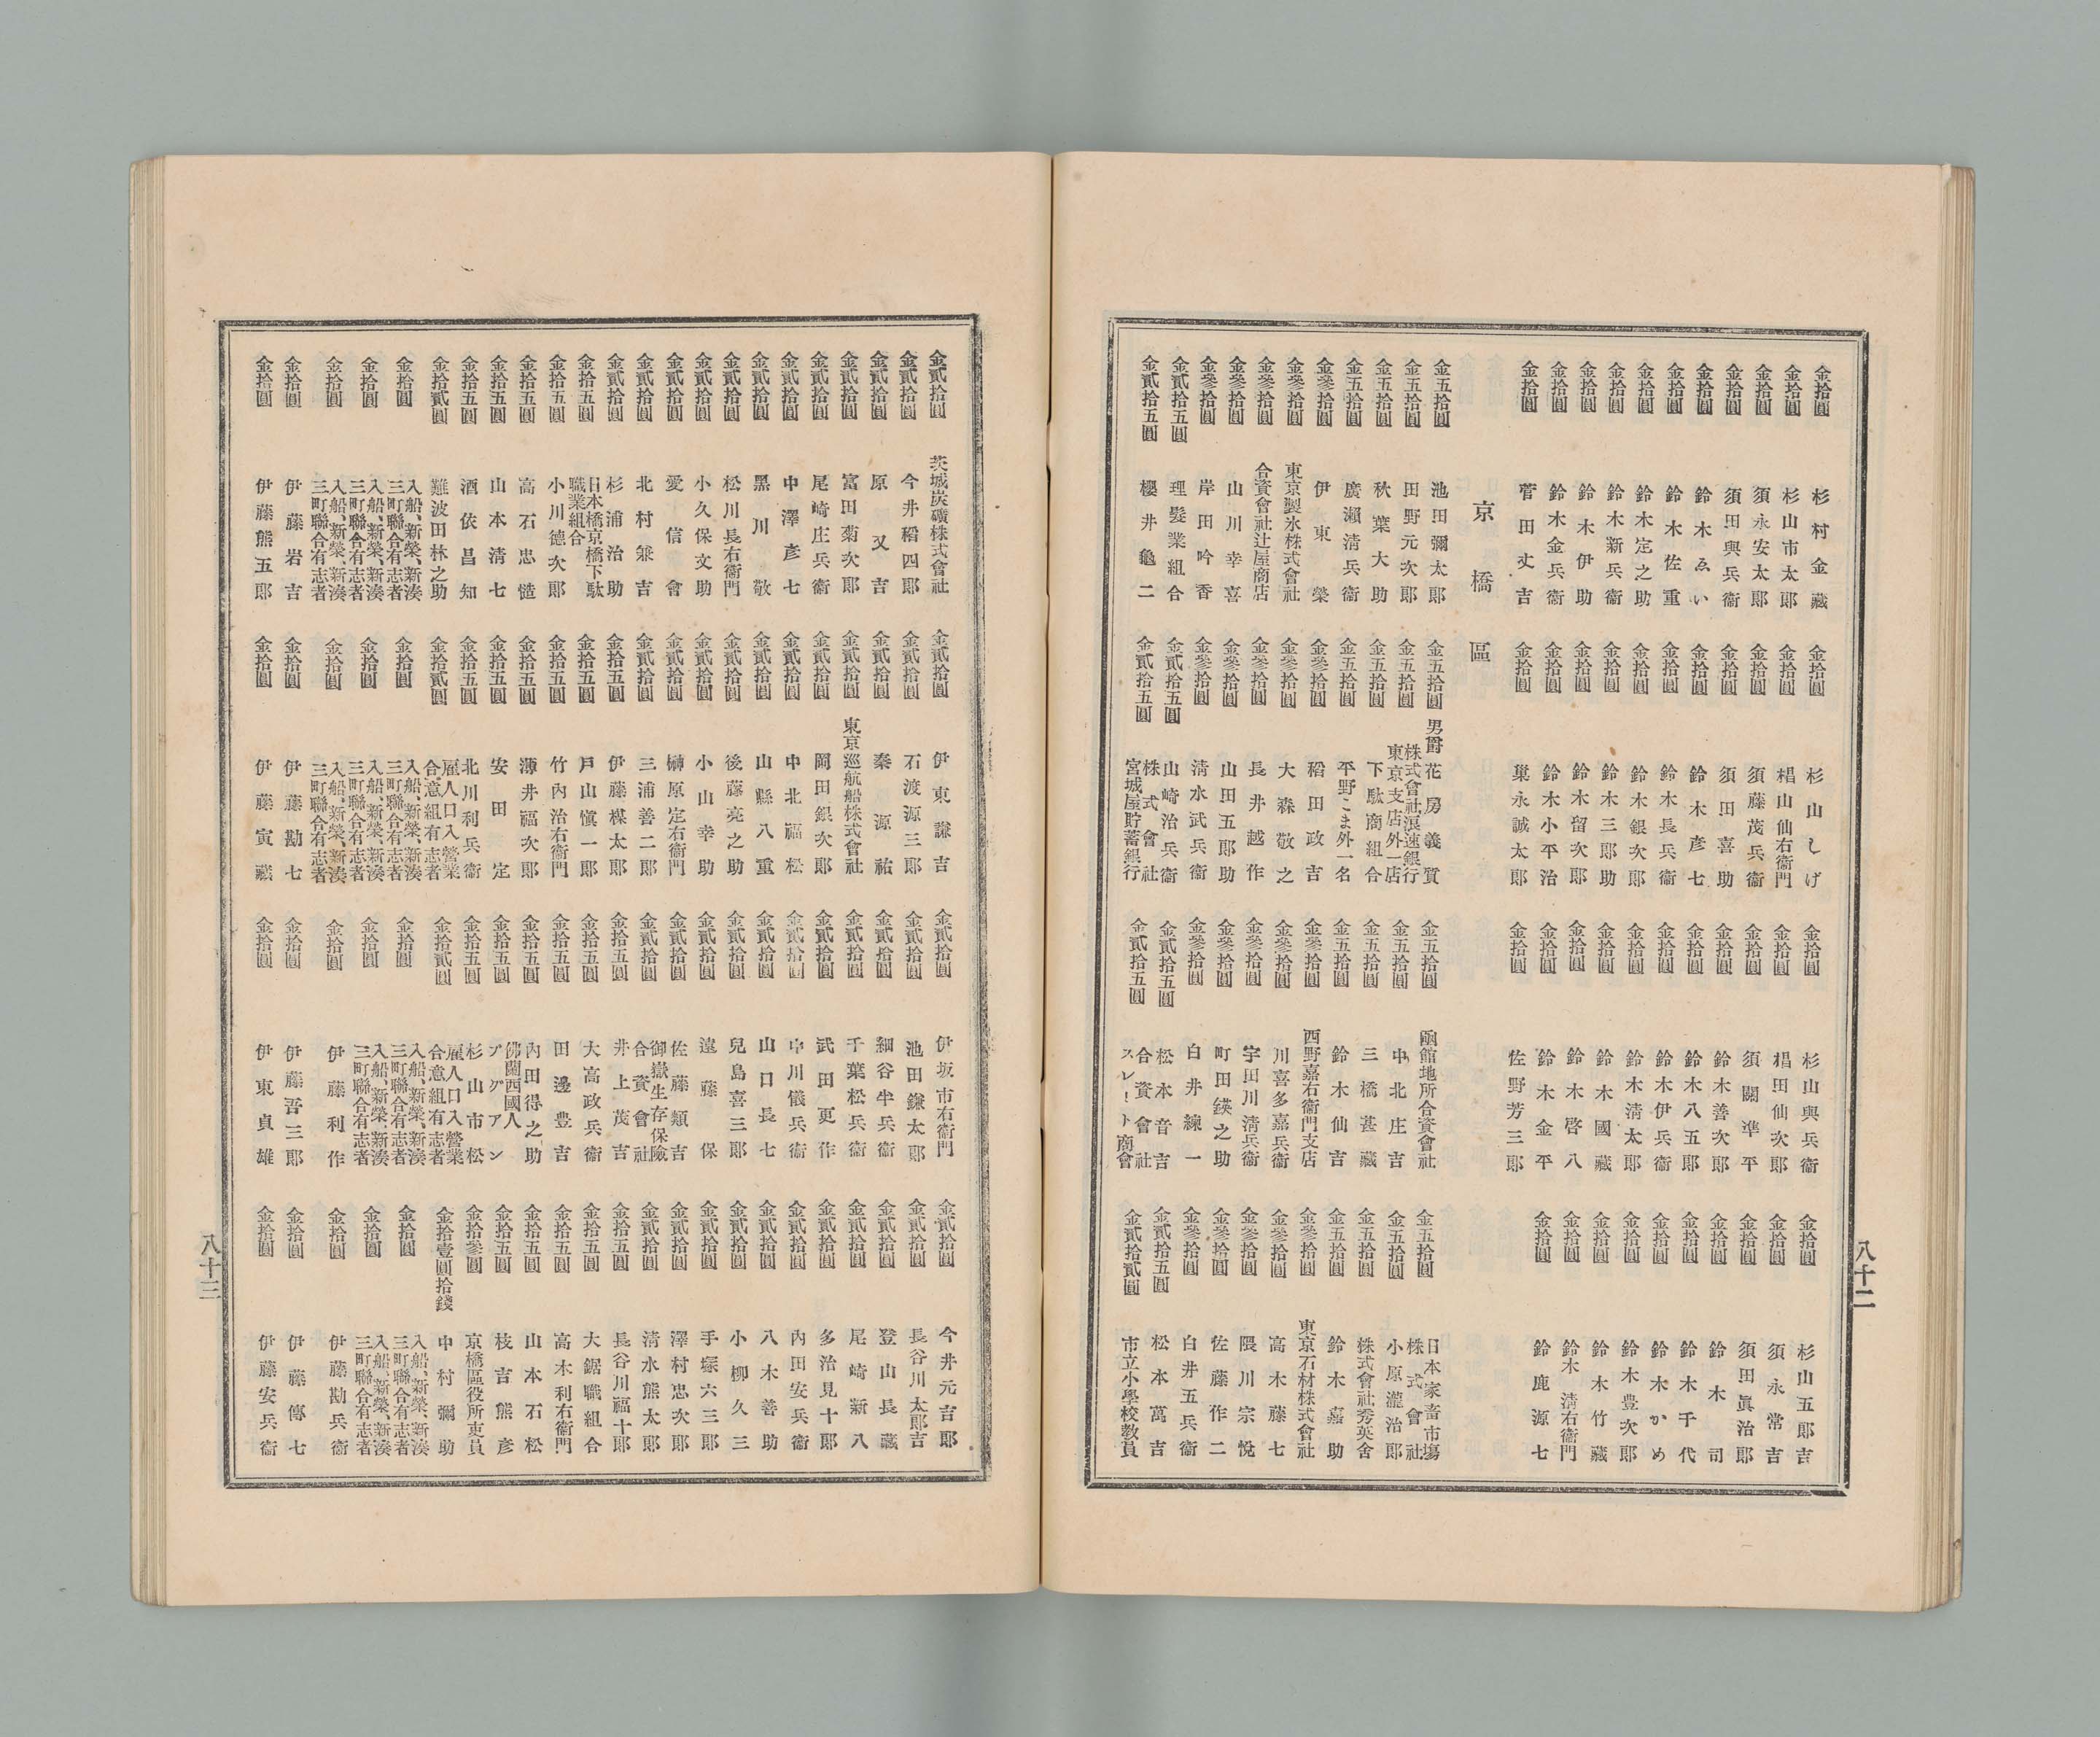 金拾圓 杉村金藏 金拾圓 杉山しげ 金拾圓 杉山與兵衞 金拾圓 杉山五郎吉
金拾圓 杉山市太郎 金拾圓 椙山仙右衞門 金拾圓 椙田仙次郎 金拾圓 須永常吉
金拾圓 須永安太郎 金拾圓 須藤茂兵衞 金拾圓 須關準平 金拾圓 須田眞治郎
金拾圓 須田與兵衞 金拾圓 須田喜助 金拾圓 鈴木善次郎 金拾圓 鈴木司
金拾圓 鈴木ゑい 金拾圓 鈴木彥七 金拾圓 鈴木八五郎 金拾圓 鈴木千代
金拾圓 鈴木佐重 金拾圓 鈴木長兵衞 金拾圓 鈴木伊兵衞 金拾圓 鈴木かめ
金拾圓 鈴木定之助 金拾圓 鈴木銀次郎 金拾圓 鈴木淸太郎 金拾圓 鈴木豊次郎
金拾圓 鈴木新兵衞 金拾圓 鈴木三郎助 金拾圓 鈴木國藏 金拾圓 鈴木竹藏
金拾圓 鈴木伊助 金拾圓 鈴木留次郎 金拾圓 鈴木啓八 金拾圓 鈴木淸右衞門
金拾圓 鈴木金兵衞 金拾圓 鈴木小平治 金拾圓 鈴木金平 金拾圓 鈴鹿源七
金拾圓 菅田丈吉 金拾圓 巢永誠太郎 金拾圓 佐野芳三郎
京橋區
金五拾圓 池田彌太郎 金五拾圓 男爵花房義質 金五拾圓 函館地所合資會社 金五拾圓 日本家畜市場株式會社
金五拾圓 田野元次郎 金五拾圓 株式會社浪速銀行東京支店外一店 金五拾圓 中北庄吉 金五拾圓 小原瀧治郎
金五拾圓 秋葉大助 金五拾圓 下駄商組合 金五拾圓 三橋甚藏 金五拾圓 株式會社秀英舍
金五拾圓 廣瀨淸兵衞 金五拾圓 平野こま外一名 金五拾圓 鈴木仙吉 金五拾圓 鈴木嘉助
金參拾圓 伊東榮 金參拾圓 稻田政吉 金參拾圓 西野嘉右衞門支店 金參拾圓 東京石材株式會社
金參拾圓 東京製氷株式會社 金參拾圓 大森敬之 金參拾圓 川喜多嘉兵衞 金參拾圓 高木藤七
金參拾圓 合資會社辻屋商店 金參拾圓 長井越作 金參拾圓 宇田川淸兵衞 金參拾圓 隈川宗悅
金參拾圓 山川幸喜 金參拾圓 山田五郎助 金參拾圓 町田鍈之助 金參拾圓 佐藤作二
金參拾圓 岸田吟香 金參拾圓 淸水武兵衞 金參拾圓 白井練一 金參拾圓 白井五兵衞
金貳拾五圓 理髮業組合 金貳拾五圓 山崎治兵衞 金貳拾五圓 松本音吉 金貳拾五圓 松本萬吉
金貳拾五圓 櫻井龜二 金貳拾五圓 株式會社宮城屋貯蓄銀行 金貳拾五圓 合資會社スレート商會 金貳拾貳圓 市立小學校敎員
八十二
金貳拾圓 茨城炭礦株式會社 金貳拾圓 伊東謙吉 金貳拾圓 伊坂市右衞門 金貳拾圓 今井元吉郎
金貳拾圓 今井稻四郎 金貳拾圓 石渡源三郎 金貳拾圓 池田鎌太郎 金貳拾圓 長谷川太郎吉
金貳拾圓 原又吉 金貳拾圓 秦源祐 金貳拾圓 細谷半兵衞 金貳拾圓 登山長藏
金貳拾圓 富田菊次郎 金貳拾圓 東京巡航船株式會社 金貳拾圓 千葉松兵衞 金貳拾圓 尾崎新八
金貳拾圓 尾崎庄兵衞 金貳拾圓 岡田銀次郎 金貳拾圓 武田更作 金貳拾圓 多治見十郎
金貳拾圓 中澤彥七 金貳拾圓 中北福松 金貳拾圓 中川儀兵衞 金貳拾圓 內田安兵衞
金貳拾圓 黑川敬 金貳拾圓 山縣八重 金貳拾圓 山口長七 金貳拾圓 八木善助
金貳拾圓 松川長右衞門 金貳拾圓 後藤亮之助 金貳拾圓 兒島喜三郎 金貳拾圓 小柳久三
金貳拾圓 小久保文助 金貳拾圓 小山幸助 金貳拾圓 遠藤保 金貳拾圓 手塚六三郎
金貳拾圓 愛信會 金貳拾圓 榊原定右衞門 金貳拾圓 佐藤類吉 金貳拾圓 澤村忠次郎
金貳拾圓 北村兼吉 金貳拾圓 三浦善二郎 金貳拾圓 御嶽生存保險合資會社 金貳拾圓 淸水熊太郎
金貳拾圓 杉浦治助 金拾五圓 伊藤楳太郎 金拾五圓 井上茂吉 金拾五圓 長谷川福十郎
金拾五圓 日本橋京橋下駄職業組合 金拾五圓 戶山愼一郎 金拾五圓 大高政兵衞 金拾五圓 大鋸職組合
金拾五圓 小川德次郎 金拾五圓 竹內治右衞門 金拾五圓 田邊豊吉 金拾五圓 高木利右衞門
金拾五圓 高石忠慥 金拾五圓 薄井福次郎 金拾五圓 內田得之助 金拾五圓 山本石松
金拾五圓 山本淸七 金拾五圓 安田定 金拾五圓 佛蘭西國人アグアン 金拾五圓 枝吉熊彥
金拾五圓 酒依昌知 金拾五圓 北川利兵衞 金拾五圓 杉山市松 金拾參圓 京橋區役所吏員
金拾貳圓 難波田林之助 金拾貳圓 雇人口入營業合意組有志者 金拾貳圓 雇人口入營業合意組有志者 金拾壹圓拾錢 中村彌助
金拾圓 入船、新榮、新湊三町聯合有志者 金拾圓 入船、新榮、新湊三町聯合有志者 金拾圓 入船、新榮、新湊三町聯合有志者 金拾圓 入船、新榮、新湊三町聯合有志者
金拾圓 入船、新榮、新湊三町聯合有志者 金拾圓 入船、新榮、新湊三町聯合有志者 金拾圓 入船、新榮、新湊三町聯合有志者 金拾圓 入船、新榮、新湊三町聯合有志者
金拾圓 入船、新榮、新湊三町聯合有志者 金拾圓 入船、新榮、新湊三町聯合有志者 金拾圓 伊藤利作 金拾圓 伊藤勘兵衞
金拾圓 伊藤岩吉 金拾圓 伊藤勘七 金拾圓 伊藤吾三郎 金拾圓 伊藤傳七
金拾圓 伊藤熊五郎 金拾圓 伊藤寅藏 金拾圓 伊東貞雄 金拾圓 伊藤安兵衞
八十三